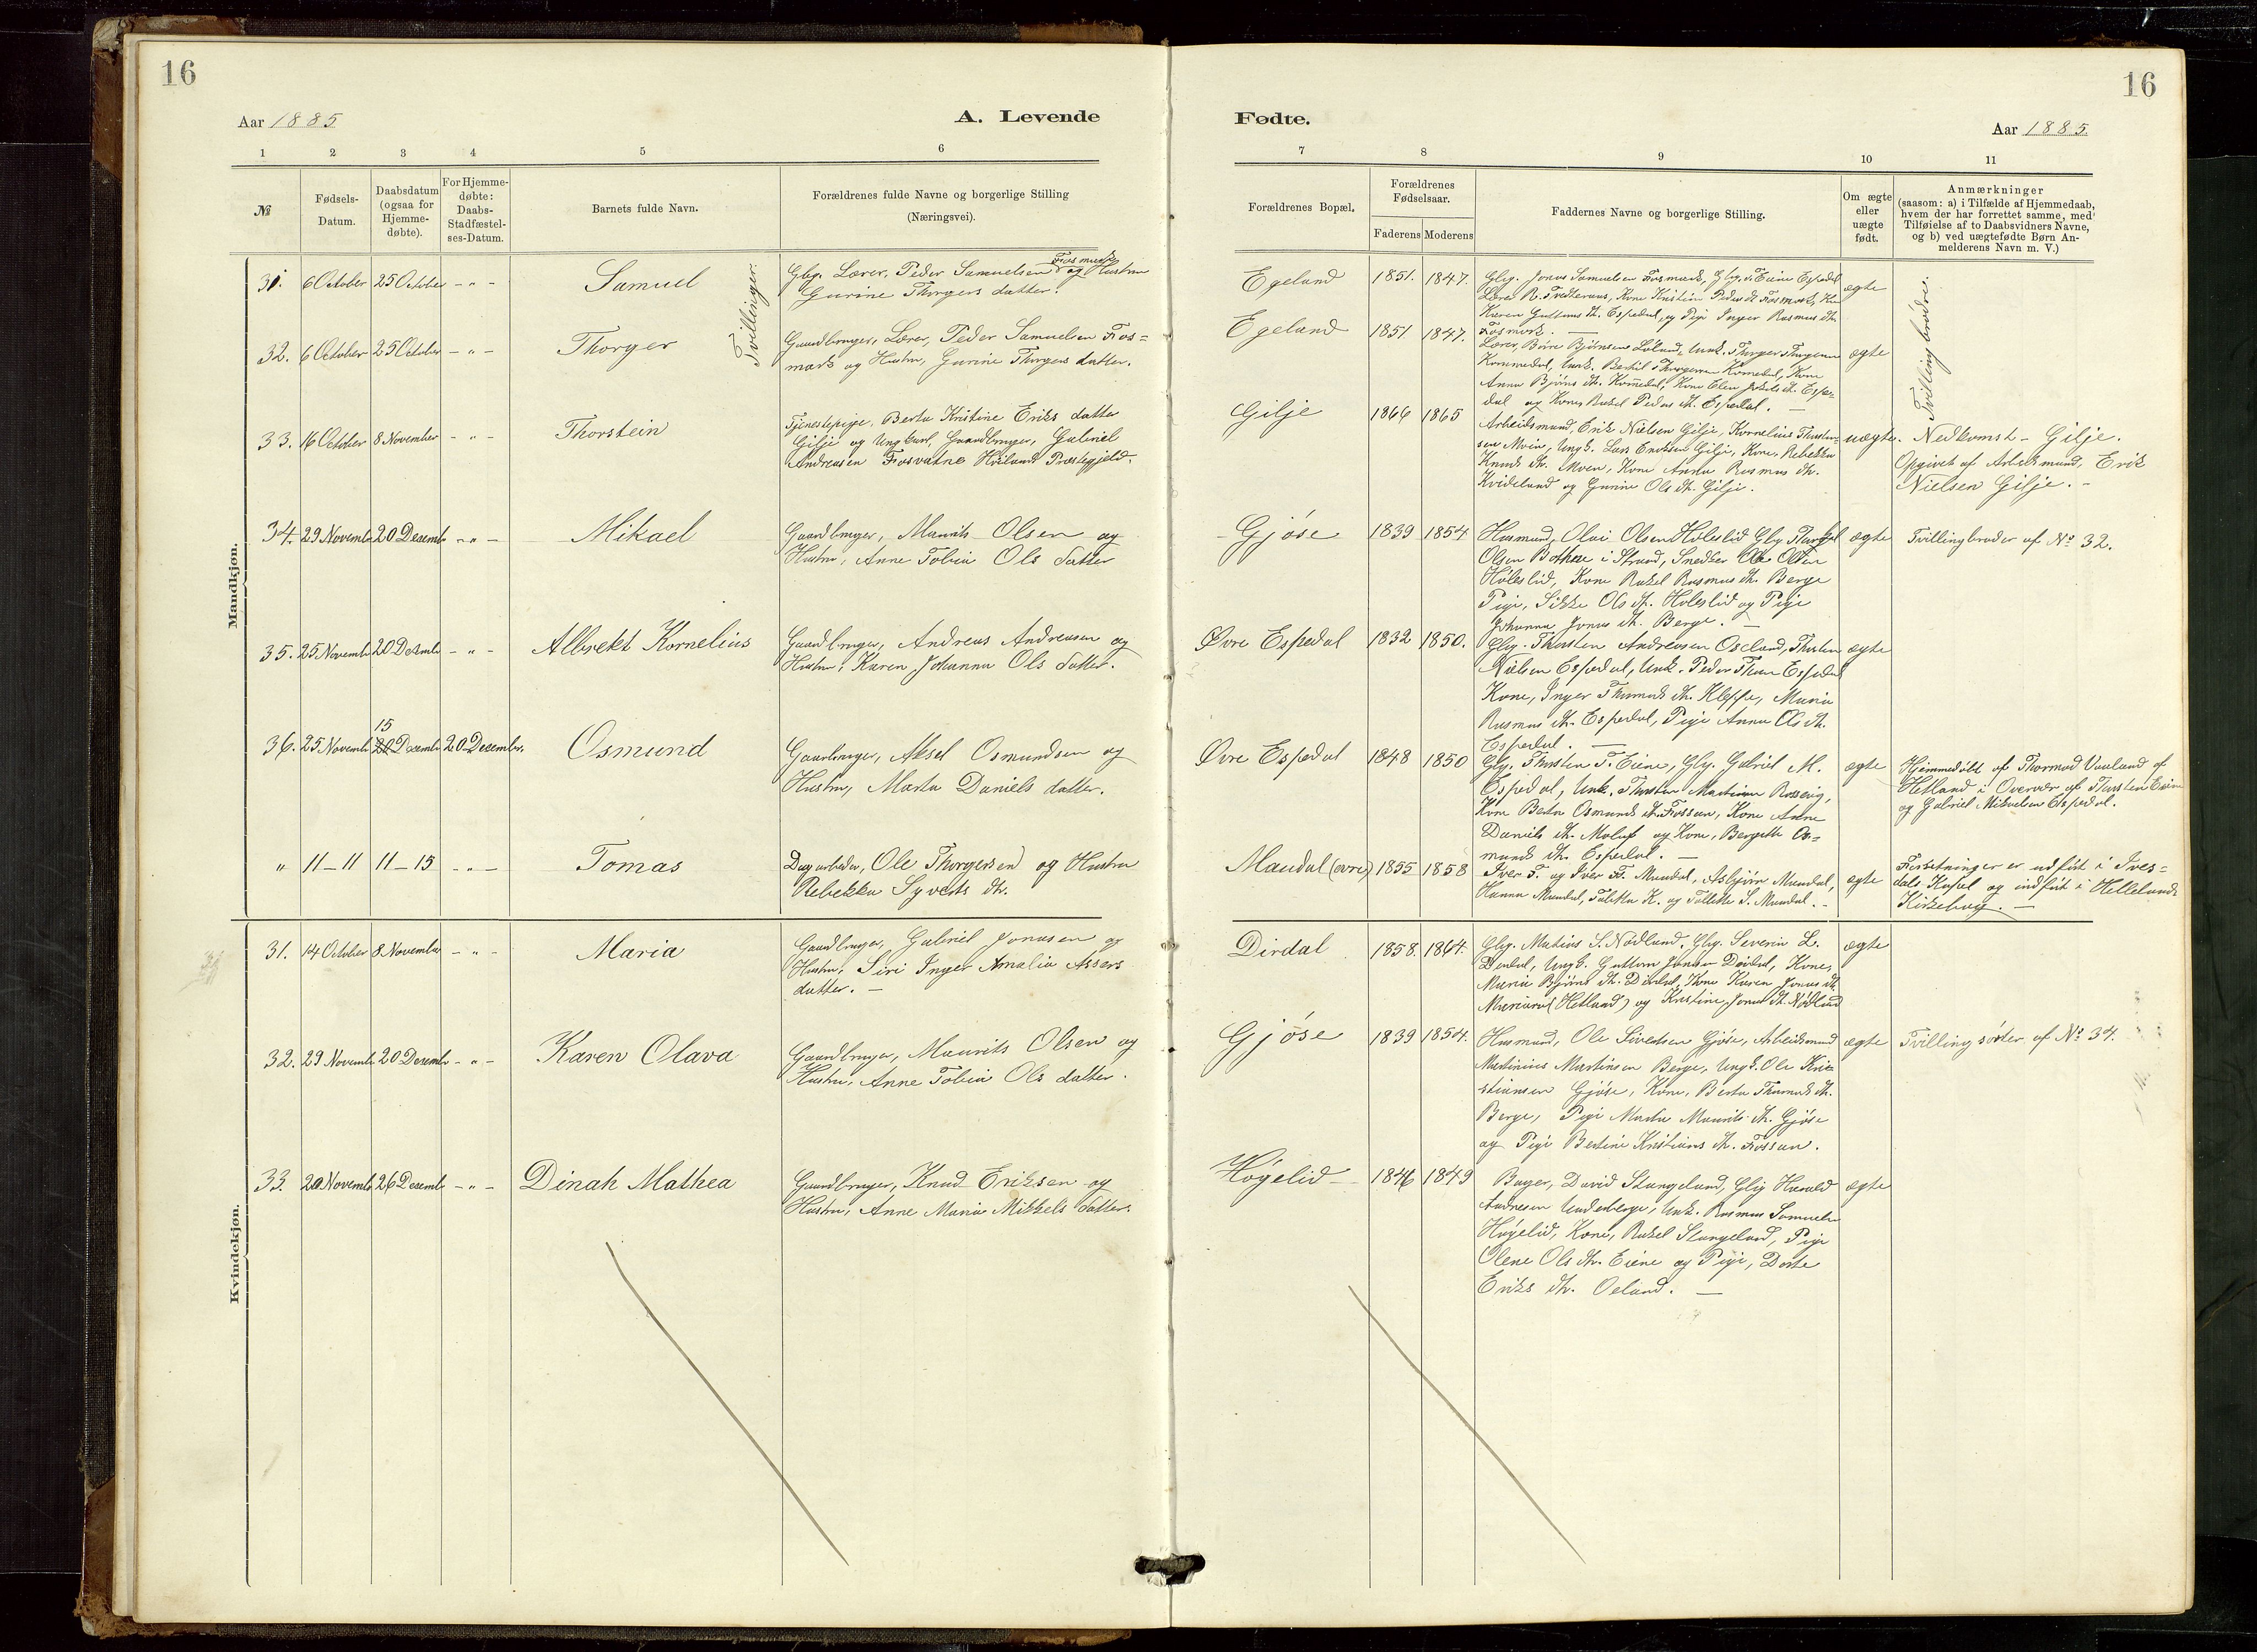 16
16
Aar 1885
A. Levende
Fødte.
Aar 1885
1 2 3 4 5 6
7 8 9 10 11
№
Fødsels-
Datum.
Daabsdatum
(ogsaa for
Hjemme-
døbte).
For Hjemme-
døbte:
Daabs-
Stadfæstel-
ses-Datum.
Barnets fulde Navn.
Forældrenes fulde Navne og borgerlige Stilling
(Næringsvei).
Forældrenes Bopæl.
Forældrenes
Fødselsaar.
Faderens Moderens
Faddernes Navne og borgerlige Stilling.
Om ægte
eller
uægte
født.
Anmærkninger
(saasom: a) i Tilfælde af Hjemmedaab,
hvem der har forrettet samme, med
Tilføielse af to Daabsvidners Navne,
og b) ved uægtefødte Børn An-
melderens Navn m. V.)
Mandkjøn.
31. 6 October 25 October - " - Samuel
Tvillinger.
Gbg. Lærer, Peder Samuelsen Fosmark og Hustru
Gurine Thorgers datter.
Egeland 1851. 1847.
Gbg. Jonas Samuelsen Fosmark, Gbg. Eiene Espedal
Lærer R. Tvedteraas, Kone Kristine Peders dt. Fosmark,
Karen Guttorms dt. Espedal, og Pige Inger Rasmus dt.
Fosmark.
ægte
Tvillingbrødre.
32. 6 October 25 October - " - Thorger
Gaardbruger, Lærer, Peder Samuelsen Fos=
mark og Hustru, Gurine Thorgers datter.
Egeland 1851 1847.
Lærer, Børre Bjørnsen Løland, Unk. Thorger Thorgersen
Kommedal, Unk. Bertil Thorgersen Komedal, Kone
Anna Bjørns dt. Komedal, Kone Elen dt. Espe-
dal og Kone Rakel Peders dt. Espedal.
ægte
33. 16 October 8 November - " - Thorstein
Tjenestepige, Berta Kristine Eriks datter
Gilje og Ungkarl, Gaardbruger, Gabriel
Andreasen Fosvatne Høilands Præstegjeld.
Gilje 1866 1865
Arbeidsmand, Erik Nielsen Gilje, Kornelius Thorsten-
sen Moen, Ungk. Lars Eriksen Gilje, Kone, Rebekka
Knuds dt. Moen, Kone Anna Rasmus dt.
Kvideland og Gurine Ols dt. Gilje.
uægte.
Nedkomst - Gilje.
Opgivet af Arbeidsmand, Erik
Nielsen Gilje. -
34. 29 Novemb 20 Desemb - " - Mikael
Gaardbruger, Maurits Olsen og
Hustru, Anne Tobia Ols datter
Gjøse 1839 1854
Husmand, Olai Olsen Høleslid Gbg. Thorkel
Olsen Bothne i Strand, Snedker Ole Olsen
Høleslid, Kone Rakel Rasmus dt. Berge
Pige, Sikke Ols dt. Høleslid og Pige
Johanna Jonas dt. Berge.
ægte
Tvillingbroder af No 32.
35. 25 Novemb 20 Desemb - " - Albrekt Kornelius
Gaardbruger, Andreas Andreasen og
Hustru, Karen Johanna Ols datter.
Øvre Espedal 1832 1850.
Gbg. Thorsten Andreasen Oseland, Thorsten
Nielsen Espedal, Unk. Peder Espedal
Kone, Inger Thormods dt. Kleppe, Maria
Rasmus dt. Espedal, Pige Anna Ols dt.
Espedal.
ægte
36. 25 Novemb 15 20 Desemb 20 Desember. Osmund
Gaardbruger, Aksel Osmundsen og
Hustru, Marta Daniels datter.
Øvre Espedal 1848 1850
Gbg. Thorsten T. Eiene, Gbg. Gabriel M.
Espedal, Unk. Thorsten Martinsen Rossevig,
Kone Berta Osmunds dt. Fossan, Kone Anne
Daniels dt. og Kone, Bergitte Os=
munds dt. Espedal.
ægte
Hjemmedøbt af Thormod Vaaland af
Hetland i Overvær af Thorsten Eiene
og Gabriel Mikalsen Espedal.
" 11-11 11-15 - " - Tomas
Dagarbeider, Ole Thorgersen og Hustru
Rebekka Syverts dt.
Maudal (øvre) 1855 1858
Iver T. og Iver Maudal, Asbjørn Maudal,
Hanna Maudal, Tolette K. og Tollette S. Maudal.
ægte
er udført i Ives=
dals Kapel og indført i Hellelands
Kirkebog.
Kvindekjøn.
31. 14 October 8 November - " - Maria
Gaardbruger, Gabriel Jonasen og
Hustru, Siri Inger Amalia Assers
datter. -
Dirdal 1858. 1864.
Gbg. Matias S. Nødland, Gbg. Severin L.
Dirdal, Ungk. Guttorm Jonsen Dirdal, Kone,
Maria Bjørns dt. Dirdal, Kone Karen Jonas dt.
(Hetland) og Kristine Jonas dt. Nødland
ægte
32. 29 Novemb 20 Desemb - " - Karen Olava
Gaardbruger, Maurits Olsen og
Hustru, Anne Tobia Ols datter.
Gjøse 1839 1854.
Husmand, Ole Sivertsen Gjøse, Arbeidsmand
Martinius Martinsen Berge, Ungk. Ole Kri-
stiansen Gjøse, Kone, Berta Thormods dt.
Berge, Pige Marta Maurits dt. Gjøse
og Pige Bertine Kristians dt. Fossan.
ægte
Tvillingsøster af No 34.
33. 20 Novemb 26 Desemb - " - Dinah Mathea
Gaardbruger, Knud Eriksen og
Hustru, Anne Maria Mikkels datter.
Høgelid 1846 1849
Bager, David Stangeland, Gbg Harald
Andresen Underberge, Unk. Rasmus Samuelsen
Høgelid, Kone, Rakel Stangeland, Pige
Olene Ols dt. Eiene og Pige, Dorte
Eriks dt. Oeland.
ægte